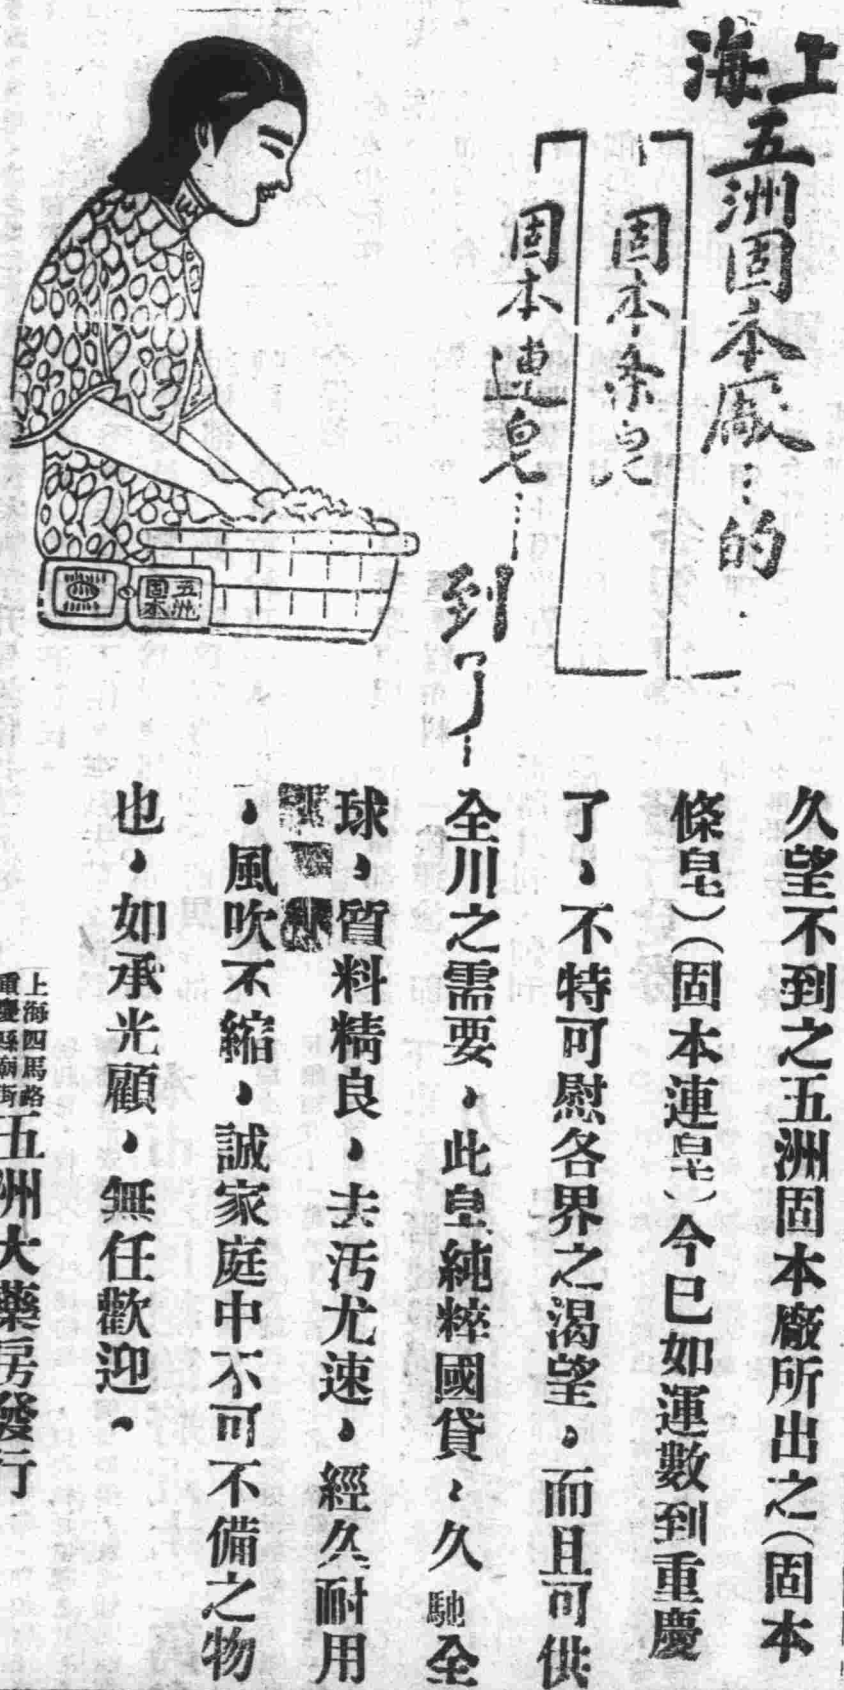 上海
五洲固本厰…的
固本条皂
固本連皂…
到了
五洲
固本
久望不到之五洲固本廠所出之(固本
條皂)(固本連皂)今已如運數到重慶
了，不特可慰各界之渴望，而且可供
全川之需要，此皂純粹國貨，久馳全
球，質料精良，去汚尤速，經久耐用
，風吹不縮，誠家庭中不可不備之物
也，如承光顧，無任歡迎。
上海四馬路
重慶縣廟街
五洲大藥房發行